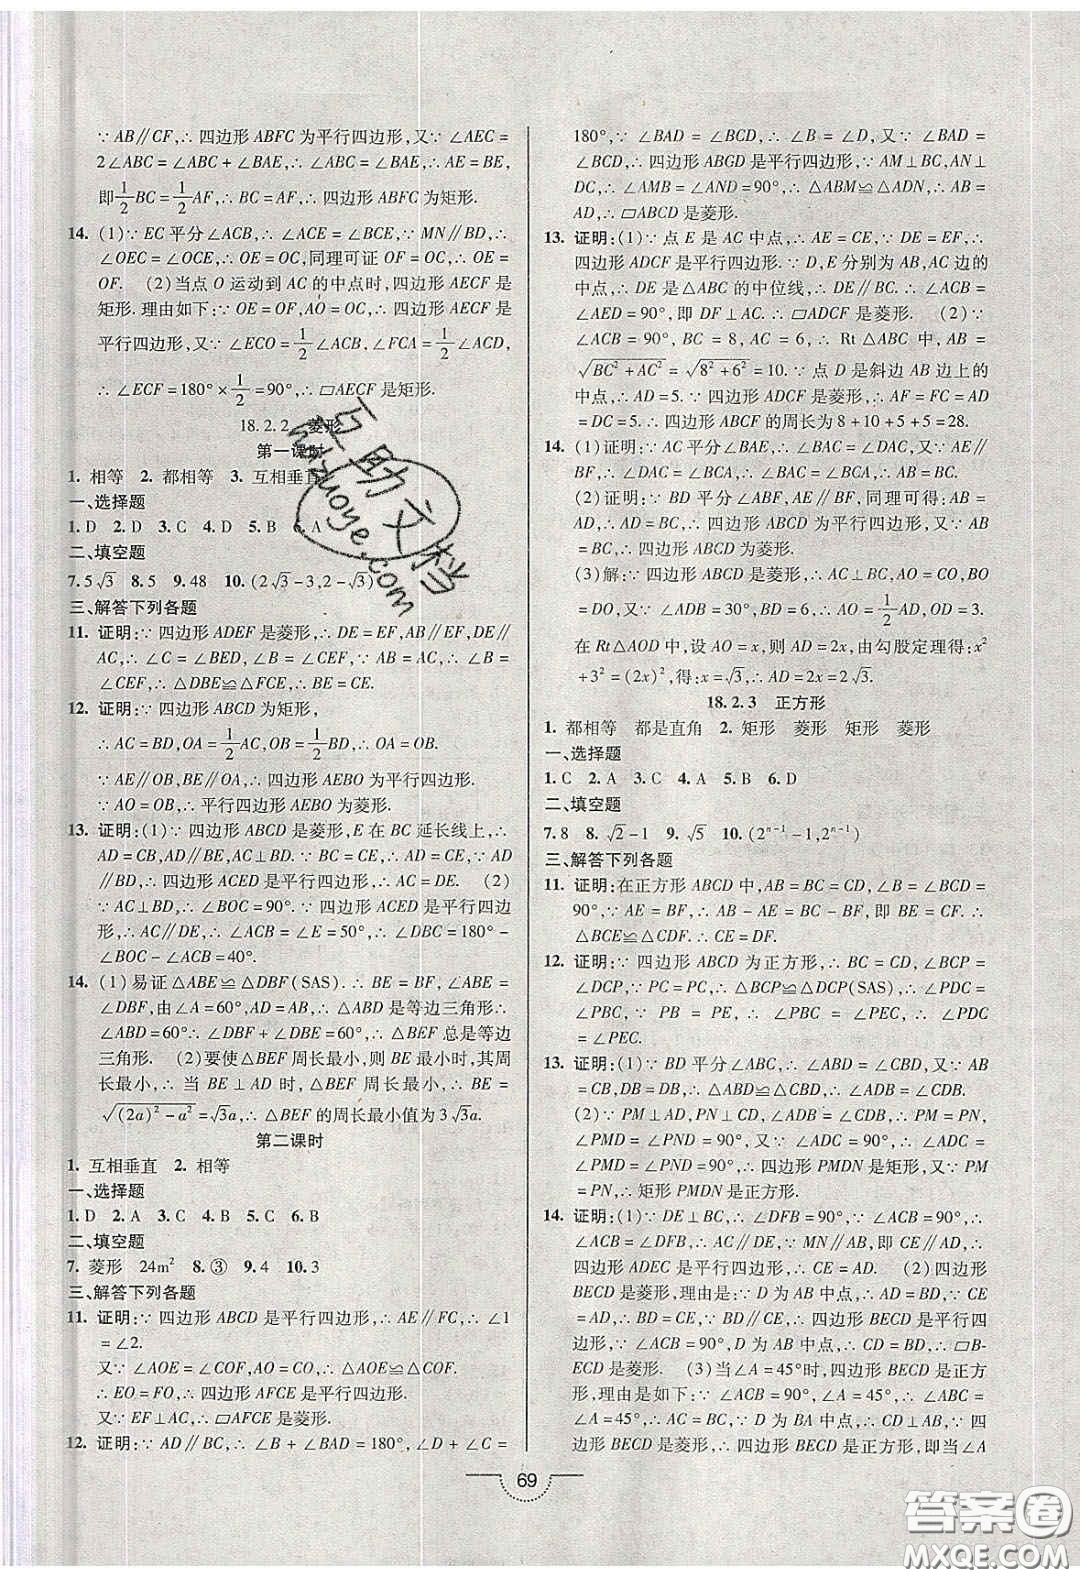 ∵ AB∥CF,∴ 四边形 ABFC 为平行四边形,又∵ ∠AEC =
2∠ABC = ∠ABC + ∠BAE,∴ ∠ABC = ∠BAE,∴ AE = BE,
即1/2BC = 1/2AF,∴ BC = AF,∴ 四边形 ABFC 为矩形.
14. (1)∵ EC 平分∠ACB,∴ ∠ACE = ∠BCE,∵ MN∥BD,∴
∠OEC = ∠OCE,∴ OE = OC,同理可证 OF = OC,∴ OE =
OF. (2)当点 O 运动到 AC 的中点时,四边形 AECF 是
矩形. 理由如下:∵ OE = OF,AO = OC,∴ 四边形 AECF 是
平行四边形,又∵ ∠ECO = 1/2∠ACB,∠FCA = 1/2∠ACD,
∴ ∠ECF = 180° × 1/2 = 90°,∴ ▱AECF 是矩形.
18.2.2 菱形
第一课时
1. 相等 2. 都相等 3. 互相垂直
一、选择题
1. D 2. D 3. C 4. D 5. B 6. A
二、填空题
7. 5√3 8. 5 9. 48 10. (2√3 - 3, 2 - √3)
三、解答下列各题
11. 证明:∵ 四边形 ADEF 是菱形,∴ DE = EF,AB∥EF,DE∥
AC,∴ ∠C = ∠BED,∠B = ∠CEF,∵ AB = AC,∴ ∠B =
∠CEF,∴ △DBE≌△FCE,∴ BE = CE.
12. 证明:∵ 四边形 ABCD 为矩形,
∴ AC = BD,OA = 1/2AC,OB = 1/2BD,∴ OA = OB.
∵ AE∥OB,BE∥OA,∴ 四边形 AEBO 为平行四边形.
∵ AO = OB,∴ 平行四边形 AEBO 为菱形.
13. 证明:(1)∵ 四边形 ABCD 是菱形,E 在 BC 延长线上,∴
AD = CB,AD∥BE,AC⊥BD,∵ ∠BDE = 90°,∴ AD
∥BD,∴ 四边形 ACED 是平行四边形,∴ AC = DE. (2)
∵ AC⊥BD,∴ ∠BOC = 90°. ∵ 四边形 ACED 是平行四边
形,∴ AC∥DE,∴ ∠ACB = ∠E = 50°,∴ ∠DBC = 180° -
∠BOC - ∠ACB = 40°.
14. (1)易证△ABE≌△DBF(SAS). ∴ BE = BF,∠ABE =
∠DBF,由∠A = 60°,AD = AB,∴ △ABD 是等边三角形∴
∠ABD = 60°∴ ∠DBF + ∠DBE = 60°,∴ △BEF 总是等边
三角形. (2)要使△BEF 周长最小,则 BE 最小时,其周
长最小,∴ 当 BE⊥AD 时,△BEF 周长最小,∴ BE =
√((2a)² - a²) = √3a,∴ △BEF 的周长最小值为 3√3a.
第二课时
1. 互相垂直 2. 相等
一、选择题
1. D 2. A 3. C 4. B 5. C 6. B
二、填空题
7. 菱形 24m² 8. ③ 9. 4 10. 3
三、解答下列各题
11. 证明:∵ 四边形 ABCD 是平行四边形,∴ AE∥FC,∴ ∠1
= ∠2.
又∵ ∠AOE = ∠COF,AO = CO,∴ △AOE≌△COF.
∴ EO = FO,∴ 四边形 AFCE 是平行四边形.
又∵ EF⊥AC,∴ ▱AFCE 是菱形.
12. 证明:∵ AD∥BC,∴ ∠B + ∠BAD = 180°,∠D + ∠C =
180°,∵ ∠BAD = ∠BCD,∴ ∠B = ∠D,又∵ ∠BAD =
∠BCD,∴ 四边形 ABGD 是平行四边形. ∵ AM⊥BC,AN⊥
DC,∴ ∠AMB = ∠AND = 90°,∴ △ABM≌△ADN,∴ AB =
AD,∴ ▱ABCD 是菱形.
13. 证明:(1)∵ 点 E 是 AC 中点,∴ AE = CE,∵ DE = EF,∴
四边形 ADCF 是平行四边形. ∵ D,E 分别为 AB,AC 边的
中点,∴ DE 是△ABC 的中位线,∴ DE∥BC,∵ ∠ACB =
∠AED = 90°,即 DF⊥AC. ∴ ▱ADCF 是菱形. (2)∵
∠ACB = 90°, BC = 8, AC = 6, ∴ Rt△ABC 中, AB =
√(BC² + AC²) = √(8² + 6²) = 10. ∵ 点 D 是斜边 AB 边上的
中点,∴ AD = 5. ∵ 四边形 ADCF 是菱形,∴ AF = FC = AD
= DC = 5. ∴ 四边形 ABCF 的周长为 8 + 10 + 5 + 5 = 28.
14. (1)证明:∵ AC 平分∠BAE,∴ ∠BAC = ∠DAC,又∵ AE∥
BF,∴ ∠DAC = ∠BCA,∴ ∠BAC = ∠BCA,∴ AB = BC.
(2)证明:∵ BD 平分∠ABF,AE∥BF,同理可得:AB =
AD,∴ AD = BC,∴ 四边形 ABCD 为平行四边形,又∵ AB
= BC,∴ 四边形 ABCD 为菱形.
(3)解:∵ 四边形 ABCD 是菱形,∴ AC⊥BD,AO = CO,BO =
DO,又∵ ∠DAB = 30°, BD = 6,∴ AO = 1/2AD, OD = 3.
在 Rt△AOD 中,设 AO = x,则 AD = 2x,由勾股定理得:x²
+ 3² = (2x)²,得:x = √3,∴ AD = 2x = 2√3.
18.2.3 正方形
1. 都相等 都是直角 2. 矩形 菱形 矩形 菱形
一、选择题
1. C 2. A 3. C 4. A 5. B 6. D
二、填空题
7. 8 8. √2 - 1 9. √5 10. (2ⁿ⁻¹ - 1, 2ⁿ⁻¹)
三、解答下列各题
11. 证明:在正方形 ABCD 中,AB = BC = CD,∠B = ∠BCD =
90°,∵ AE = BF,∴ AB - AE = BC - BF,即 BE = CF. ∴
△BCE≌△CDF. ∴ CE = DF.
12. 证明:∵ 四边形 ABCD 为正方形,∴ BC = CD,∠BCP =
∠DCP,∵ PC = PC,∴ △BCP≌△DCP(SAS),∴ ∠PDC =
∠PBC, ∵ PB = PE, ∴ ∠PBC = ∠PEC, ∴ ∠PDC
= ∠PEC.
13. 证明:(1)∵ BD 平分∠ABC,∴ ∠ABD = ∠CBD,又∵ AB
= CB,DB = DB,∴ △ABD≌△CBD,∴ ∠ADB = ∠CDB.
(2)∵ PM⊥AD,PN⊥CD,∠ADB = ∠CDB,∴ PM = PN,
∠PMD = ∠PND = 90°,又∵ ∠ADC = 90°,∴ ∠ADC =
∠PMD = ∠PND = 90°,∴ 四边形 PMDN 是矩形,又∵ PM
= PN,∴ 矩形 PMDN 是正方形.
14. 证明:(1)∵ DE⊥BC,∴ ∠DFB = 90°,∵ ∠ACB = 90°,∴
∠ACB = ∠DFB,∴ AC∥DE,∵ MN∥AB,即 CE∥AD,∴ 四
边形 ADEC 是平行四边形,∴ CE = AD. (2)四边形
BECD 是菱形,理由是:∵ D 为 AB 中点,∴ AD = BD,∵ CE
= AD,∴ BD = CE,∵ BD∥CE,∴ 四边形 BECD 是平行四
边形,∵ ∠ACB = 90°,D 为 AB 中点,∴ CD = BD,∴ ▱B-
ECD 是菱形. (3)当∠A = 45°时,四边形 BECD 是正方
形,理由是如下:∵ ∠ACB = 90°,∠A = 45°,∴ ∠ABC =
∠A = 45°,∴ AC = BC,∵ D 为 BA 中点,∴ CD⊥AB,∵ 四
边形 BECD 是菱形,∴ 四边形 BECD 是正方形,即当∠A
69
互助文档
huzuoye.com
答案圈
MXQE.COM